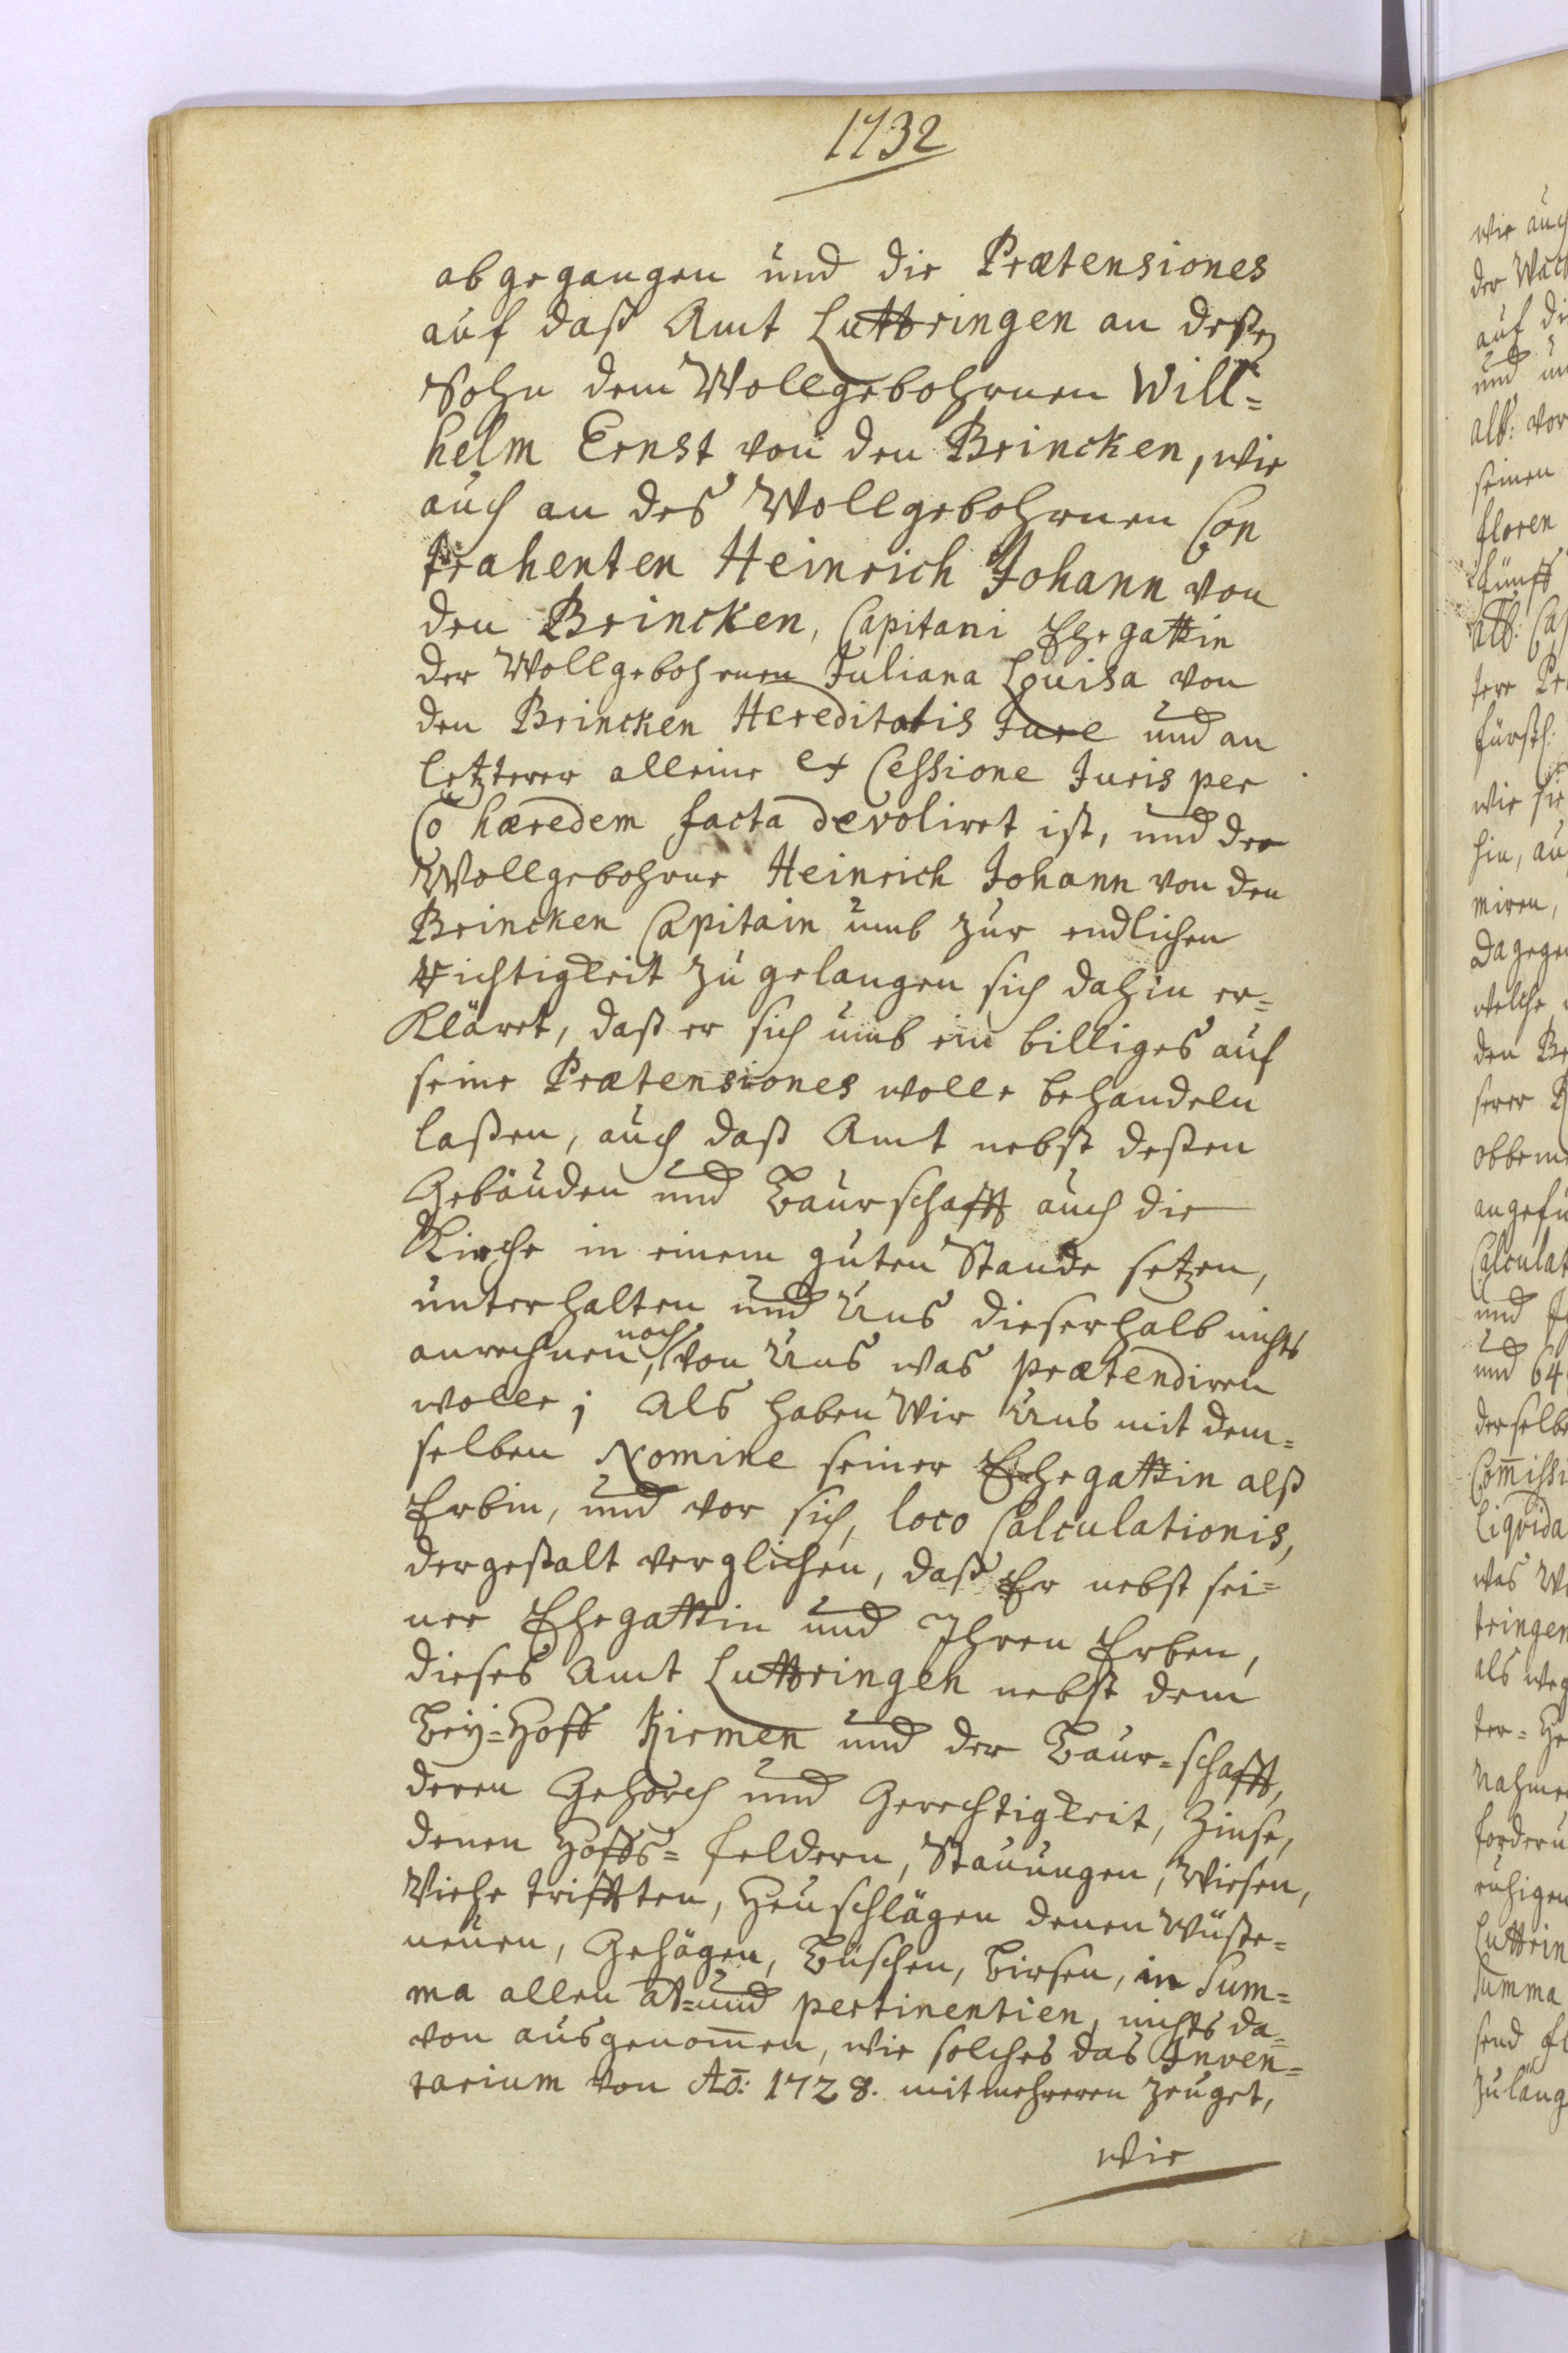 1732
abgegangen und die Prætensiones
auf daß Amt Luttringen an deßen
Sohn dem Wollgebohrnen Will=
helm Ernst von den Brincken, wie
auch an des Wollgebohrnen Con
trahenten Heinrich Johann von
den Brincken, Capitani Ehegattin
der Wollgebohrnen Juliana Louisa von
den Brincken Hereditatis Jure und an
letzterer alleine ex Cessione Juris per
Co hæredem facta devolirt ist, und der
Wollgebohrne Heinrich Johann von den
Brincken Capitain umb zur endlichen
Richtigkeit zu gelangen sich dahin er=
kläret, daß er sich umb ein billiges auf
seine Prætensiones wolle behandeln
laßen, auch daß Amt nebst deßen
Gebäuden und Baurschafft auch die
Kirche in einem guten Stande setzen,
unterhalten und Uns dieserhalb nichts
anrechnen, noch von Uns was prætendiren
wolle; Als haben Wir Uns mit dem=
selben Nomine seiner Ehegattin alß
Erbin, und vor sich, loco Calculationis,
dergestalt verglichen, daß Er nebst sei=
ner Ehegattin und Ihren Erben,
dieses Amt Luttringen nebst dem
Bey=Hoff Kirmen und der Baur=schafft,
deren Gehorch und Gerechtigkeit, Zinse,
denen Hoffs=feldern, Stauungen, Wiesen,
Viehe trifften, Heuschlägen denen Wüste=
neuen, Gehägen, Büschen, Birsen, in Sum=
ma allen At=und pertinentien, nichts da=
von ausgenom̅en, wie solches das Inven=
tarium von Ao̅: 1728. mit mehreren zeuget,
wie
wie auch
der
auf di
und
alb: vor
seinen
floren
fünff
alb:
fürstl:
wie sie
hin, auf
miren,
dagegen
welche
den Br
serer
Calculat
und
und 64
derselbe
Com̅issi
Liqvida
was Wi
tringen
als weg
Nahmen
forderu
ruhigen
Luttrin
Summa
send fl
zuläng